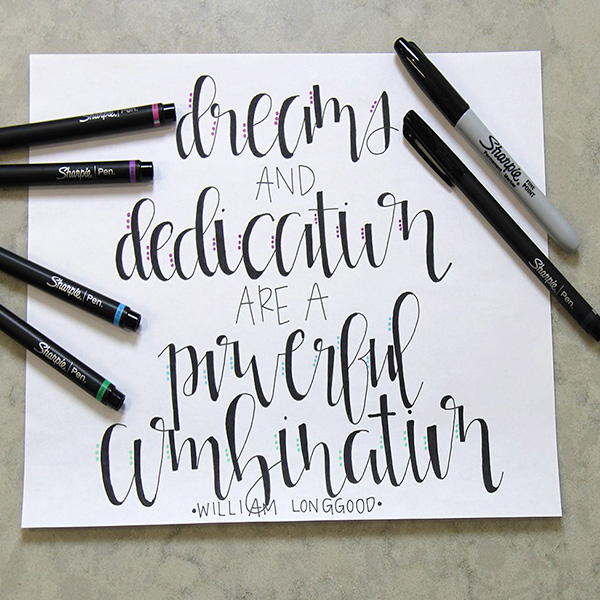 dreams
AND
dedication
ARE A
powerful
combination
•WILLIAM LONGGOOD•
Sharpie | Pen.
Sharpie | Pen.
Sharpie | Pen.
Sharpie | Pen.
Sharpie
FINE POINT
Permanent Marker
Sharpie